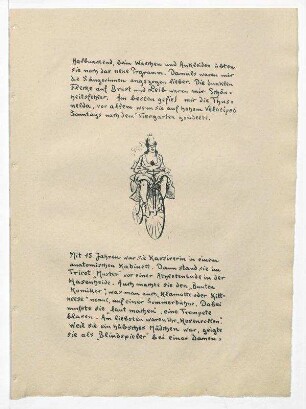 Halbnackend, beim Waschen und Ankleiden übten
sie noch das neue Programm. Damals waren mir
die Sängerinnen angezogen lieber. Die dunklen
Flecke auf Brust und Leib waren mir Schön-
heitsfehler. Am besten gefiel mir die Thus-
nelda, vor allem wenn sie auf hohem Velociped
Sonntags nach dem Tiergarten gondelte.
Mit 15 Jahren war sie Kassiererin in einem
anatomischen Kabinett. Dann stand sie im
Tricot Muster vor einer Athletenbude in der
Hasenheide. Auch machte sie den „bunten
Komiker", was man auch Klamotte oder Kitt-
neese nennt, auf einer Sommerbühne. Dabei
mußte sie laut machen, eine Trompete
blasen. Am liebsten waren ihr „Hosenrollen".
Weil sie ein hübsches Mädchen war, geigte
sie als „Blindspieler" bei einer Damen-